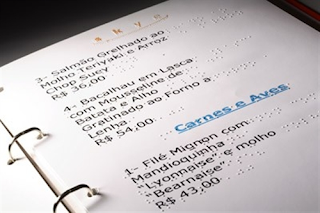 skye
3- Salmão Grelhado ao
Molho Teriyaki e Arroz
Chop Suey
R$ 36,00
4- Bacalhau em Lasca
com Mousseline de
Batata e Alho
Gratinado ao Forno à
Lenha
R$ 54,00
Carnes e Aves
1- Filé Mignon com
Mandioquinha
"Lyonnaise" e molho
"Bearnaise"
R$ 43,00